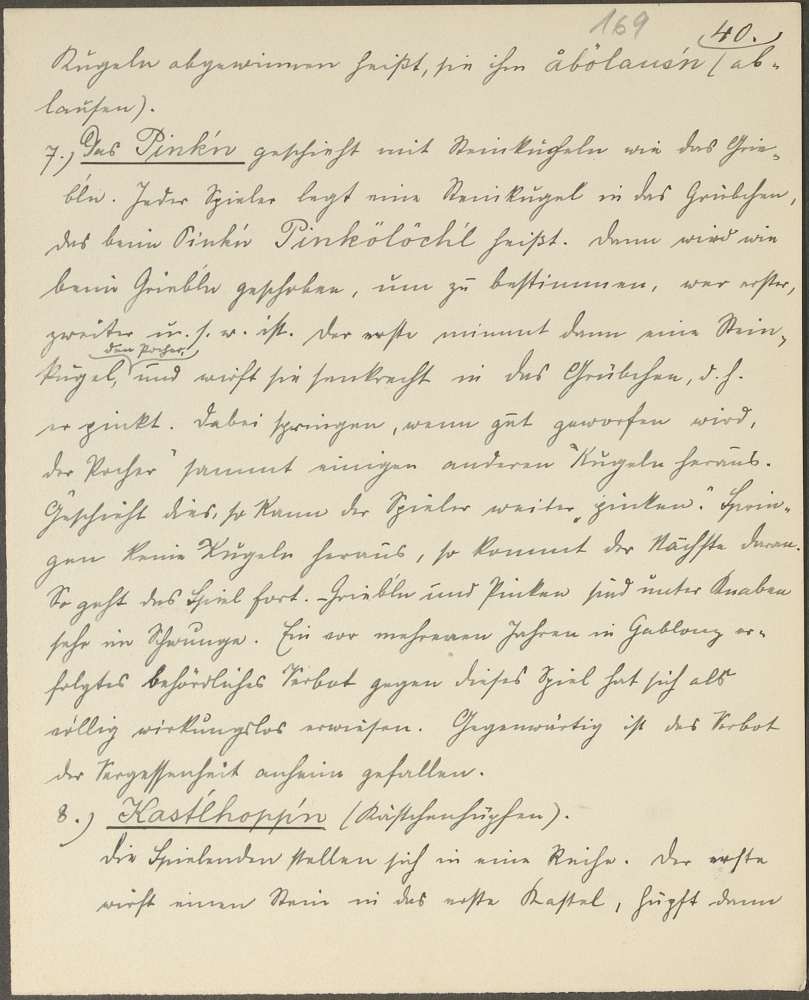 169 40.
Kugeln abgewinnen heißt, sie ihm åbölausn (ab-
lausen).
7.) Das Pink'n geschieht mit Steinkugeln wie das Grie-
bln. Jeder Spieler legt eine Steinkugel in das Grübchen,
das beim Pinkn Pinkölöchl heißt. Dann wird wie
beim Griebln geschoben, um zu bestimmen, wer erster,
zweiter u. s. w. ist. Der erste nimmt dann eine Stein-
den Pocher,
kugel, und wirft sie senkrecht in das Grübchen, d. h.
er pinkt. Dabei springen, wenn gut geworfen wird,
der "Pocher" sammt einigen anderen Kugeln heraus.
Geschieht dies, so kann der Spieler weiter „pinken." Sprin-
gen keine Kugeln heraus, so kommt der Nächste daran.
So geht das Spiel fort. Griebln und Pinken sind unter Knaben
sehr im Schwunge. Ein vor mehreren Jahren in Gablonz er-
folgtes behördliches Verbot gegen dieses Spiel hat sich als
völlig wirkungslos erwiesen. Gegenwärtig ist das Verbot
der Vergessenheit anheim gefallen.
8.) Kastlhopp'n (Kästchenhüpfen).
Die Spielenden stellen sich in eine Reihe. Der erste
wirft einen Stein in das erste Kastel, hüpft dann